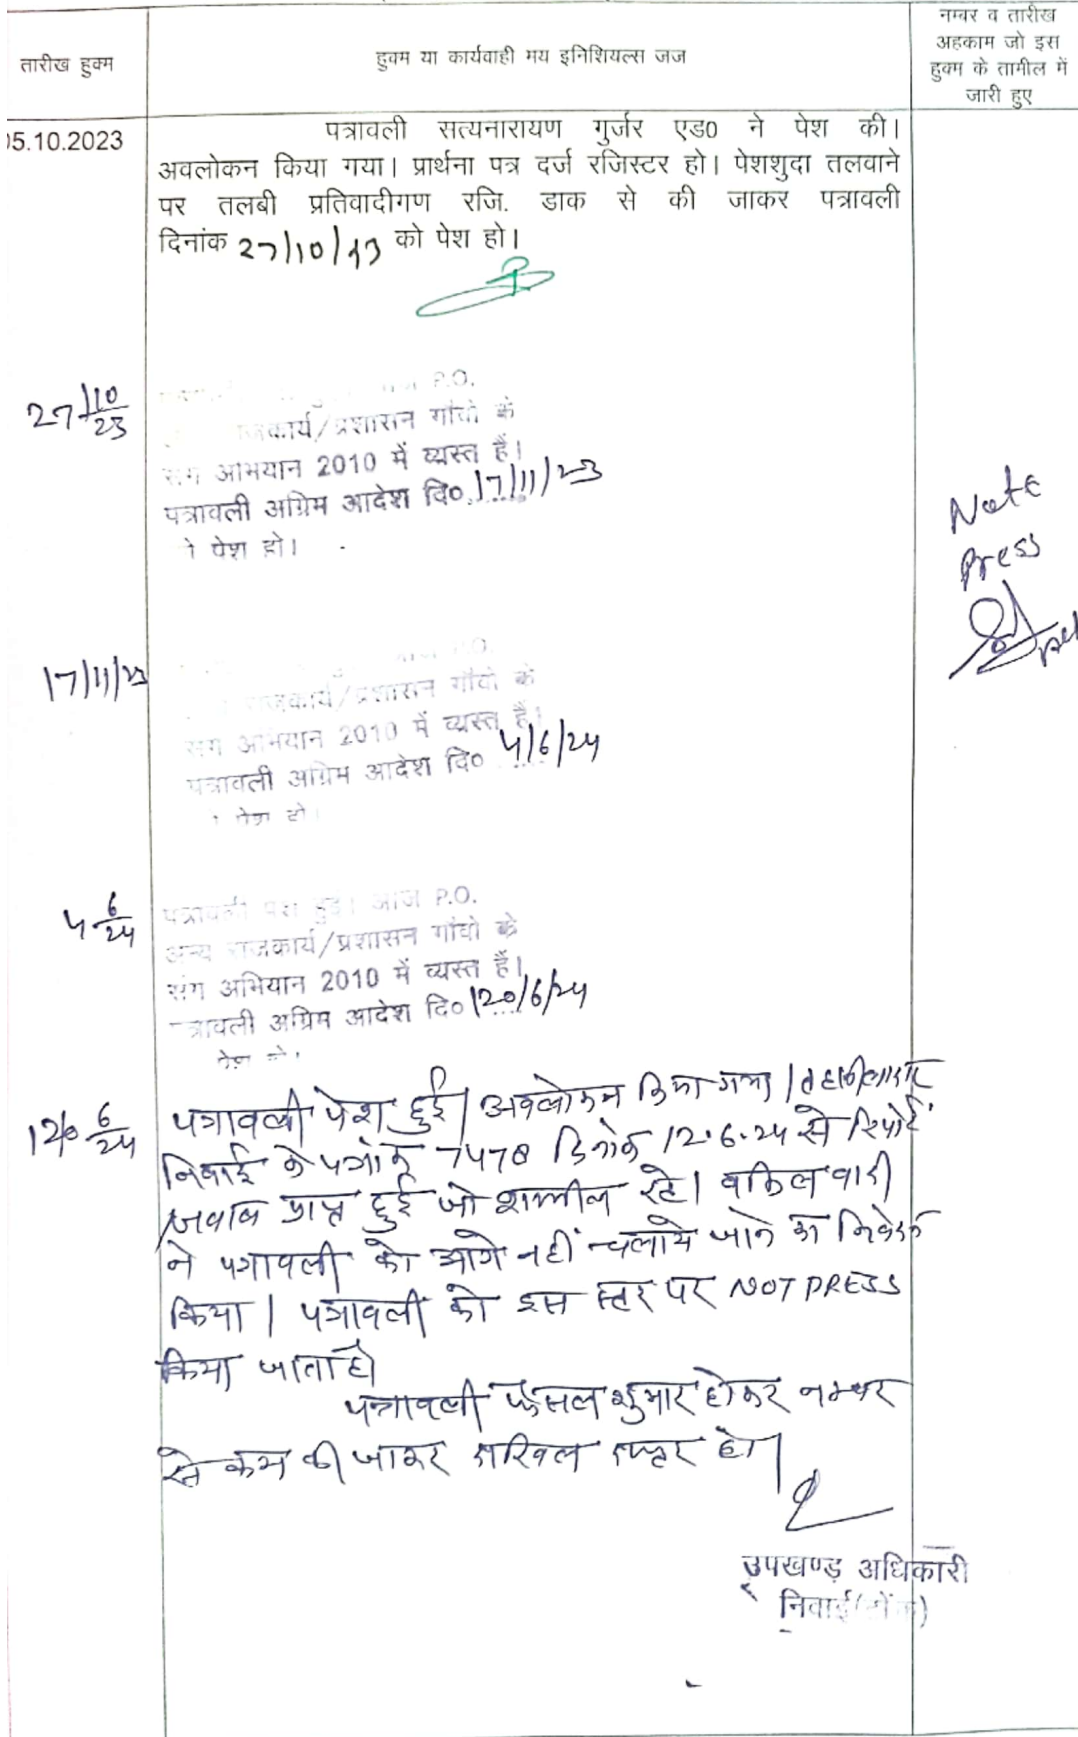 तारीख हुक्म
हुक्म या कार्यवाही मय इनिशियल्स जज
नम्बर व तारीख
अहकाम जो इस
हुक्म के तामील में
जारी हुए
05.10.2023
पत्रावली सत्यनारायण गुर्जर एड0 ने पेश की।
अवलोकन किया गया। प्रार्थना पत्र दर्ज रजिस्टर हो। पेशशुदा तलवाने
पर तलबी प्रतिवादीगण रजि. डाक से की जाकर पत्रावली
दिनांक 27/10/23 को पेश हो।
27/10/23
P.O.
राजकार्य/प्रशासन गाँवो के
संग अभियान 2010 में व्यस्त हैं।
पत्रावली अग्रिम आदेश दि० 17/11/23
पेश हो।
Note
Press
17/11/23
P.O.
राजकार्य/प्रशासन गाँवो के
संग अभियान 2010 में व्यस्त हैं।
पत्रावली अग्रिम आदेश दि० 4/6/24
पेश हो।
4 6/24
पत्रावली पेश हुई। आज P.O.
अन्य राजकार्य/प्रशासन गाँवो के
संग अभियान 2010 में व्यस्त हैं।
पत्रावली अग्रिम आदेश दि० 20/6/24
पेश हो।
20 6/24
पत्रावली पेश हुई। अवलोकन किया गया। तहसीलदार
निवाई के पत्रांक 7478 दिनांक 12.6.24 से रिपोर्ट
जवाब प्राप्त हुई जो शामील रहे। वकिल वादी
ने पत्रावली को आगे नहीं चलाये जाने का निवेदन
किया। पत्रावली को इस स्तर पर NOT PRESS
किया जाता है।
पत्रावली फैसल शुमार होकर नम्बर
से कम की जाकर दाखिल दफ्तर हो।
उपखण्ड अधिकारी
निवाई(टोंक)